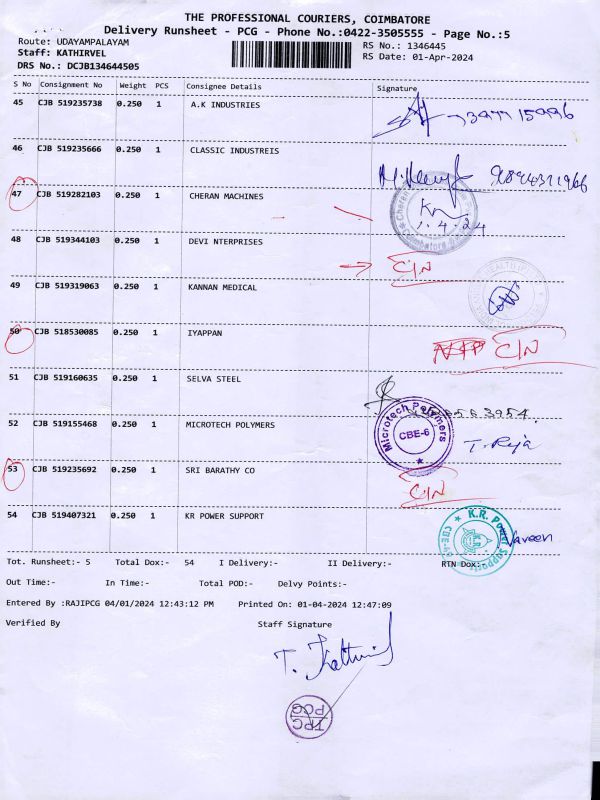 THE PROFESSIONAL COURIERS, COIMBATORE
Delivery Runsheet - PCG - Phone No.:0422-3505555 - Page No.:5
Route: UDAYAMPALAYAM
Staff: KATHIRVEL
DRS No.: DCJB134644505
RS No.: 1346445
RS Date: 01-Apr-2024
S No Consignment No Weight PCS Consignee Details Signature
45 CJB 519235738 0.250 1 A.K INDUSTRIES
46 CJB 519235666 0.250 1 CLASSIC INDUSTREIS
47 CJB 519282103 0.250 1 CHERAN MACHINES
1.4.24
48 CJB 519344103 0.250 1 DEVI NTERPRISES
C/N
49 CJB 519319063 0.250 1 KANNAN MEDICAL
50 CJB 518530085 0.250 1 IYAPPAN
C/N
51 CJB 519160635 0.250 1 SELVA STEEL
52 CJB 519155468 0.250 1 MICROTECH POLYMERS
Microtech Polymers
CBE-6
T. Raja
53 CJB 519235692 0.250 1 SRI BARATHY CO
C/N
54 CJB 519407321 0.250 1 KR POWER SUPPORT
K.R. Power Supports
Naveen
Tot. Runsheet:- 5 Total Dox:- 54 I Delivery:- II Delivery:- RTN Dox:-
Out Time:- In Time:- Total POD:- Delvy Points:-
Entered By :RAJIPCG 04/01/2024 12:43:12 PM Printed On: 01-04-2024 12:47:09
Verified By Staff Signature
TPC
PCG